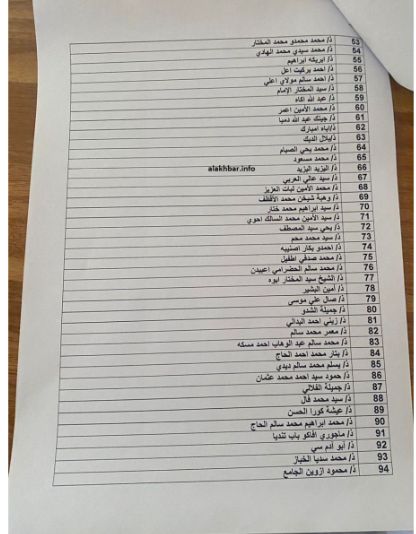 53 ذ/ محمد محمدو محمد المختار
54 ذ/ محمد سيدي محمد الهادي
55 ذ/ ابريكه ابراهيم
56 ذ/ احمد بركيت اعل
57 ذ/ احمد سالم مولاي اعلي
58 ذ/ سيد المختار الإمام
59 ذ/ عبد الله اكاه
60 ذ/ محمد الأمين اعمر
61 ذ/ جينك عبد الله دمبا
62 ذ/اياه امبارك
63 ذ/بلال الديك
64 ذ/ محمد يحي الصيام
65 ذ/ محمد مسعود
66 ذ/ اليزيد اليزيد
alakhbar.info
67 ذ/ سيد عالي العربي
68 ذ/ محمد الأمين لبات العزيز
69 ذ/ وهبة شيخن محمد الأقظف
70 ذ/ سيد ابراهيم محمد ختار
71 ذ/ سيد الأمين محمد السالك احوي
72 ذ/ يحي سيد المصطف
73 ذ/ سيد محمد محم
74 ذ/ احمدو بكار اصنيبه
75 ذ/ محمد صدفي اطفيل
76 ذ/ محمد سالم الحضرامي اعبيدن
77 ذ/ الشيخ سيد المختار ابوه
78 ذ/ أمين البشير
79 ذ/ صال علي موسى
80 ذ/ جميلة الشدو
81 ذ/ زيني احمد البدالي
82 ذ/ معمر محمد سالم
83 ذ/ محمد سالم عبد الوهاب احمد مسكه
84 ذ/ بتار محمد احمد الحاج
85 ذ/ يسلم محمد سالم ديدي
86 ذ/ حمود سيد احمد محمد عثمان
87 ذ/ جميلة الفلالي
88 ذ/ سيد محمد فال
89 ذ/ عيشة كورا الحسن
90 ذ/ محمد ابراهيم محمد سالم الحاج
91 ذ/ ماجوري افاكو باب تنديا
92 ذ/ ابو ادم سي
93 ذ/ محمد سديا الخباز
94 ذ/ محمود ازوين الجامع